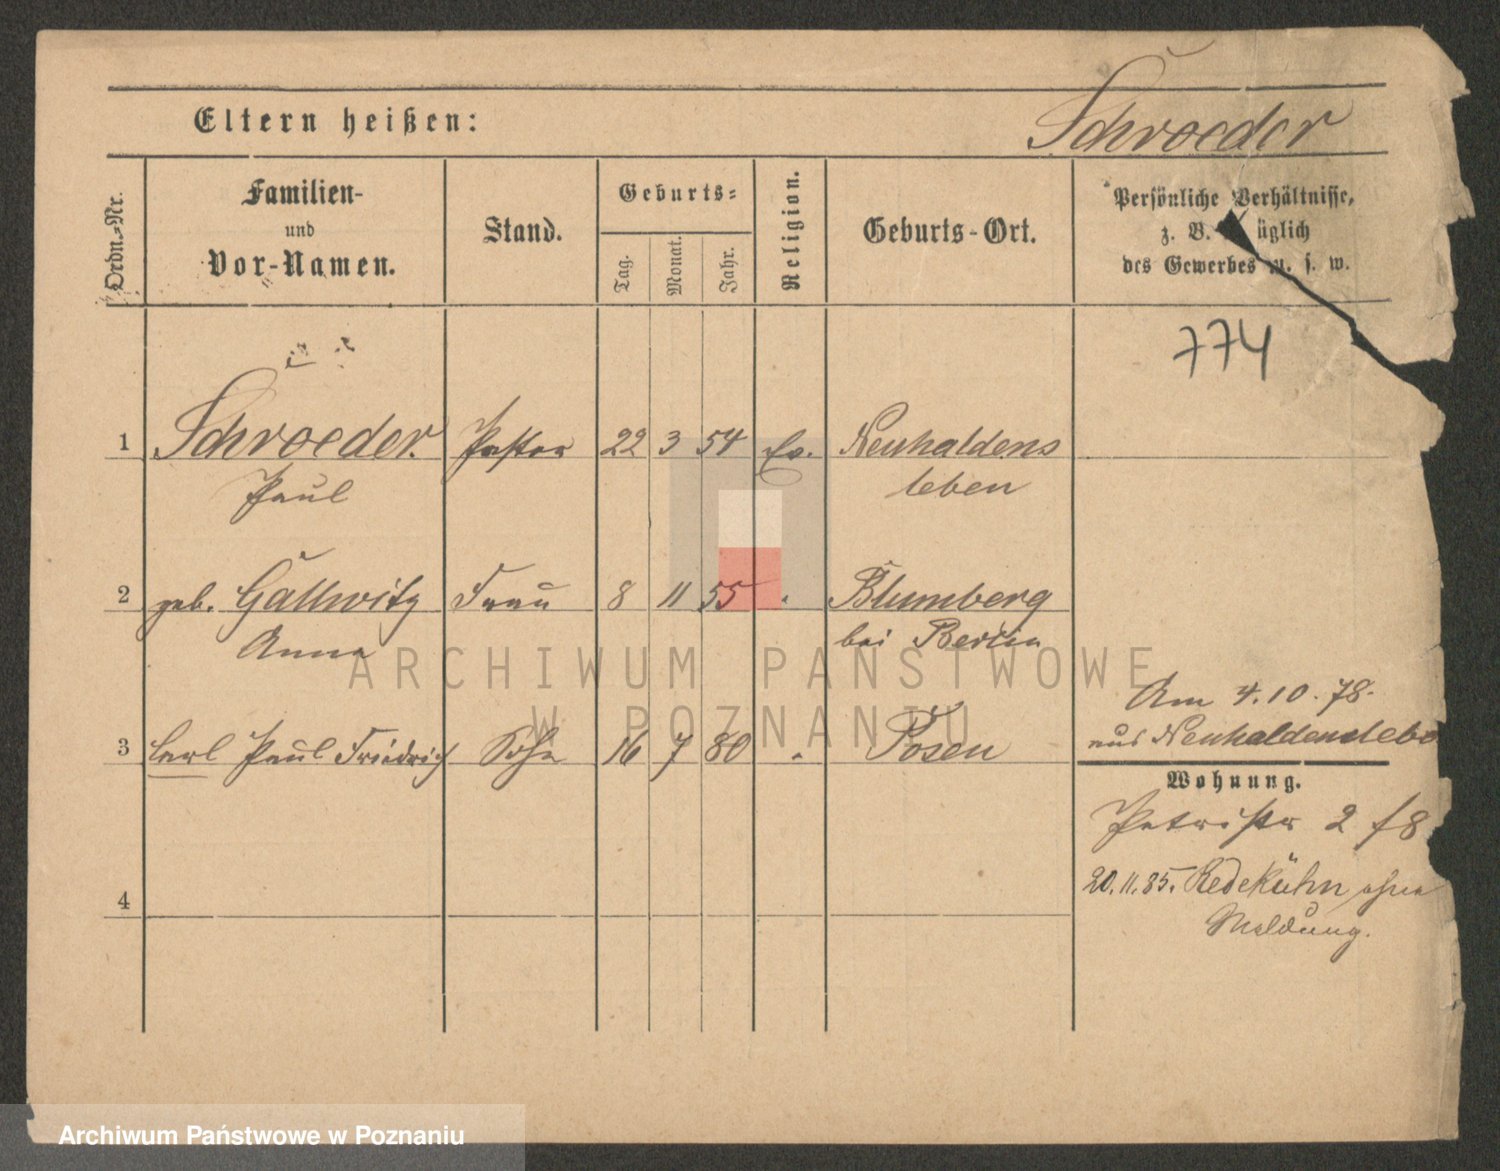 Eltern heißen:
Schroeder
Ordn.-Nr.
Familien-
und
Vor-Namen.
Stand.
Geburts-
Tag.
Monat.
Jahr.
Religion.
Geburts-Ort.
Persönliche Verhältnisse,
z. B. üglich
des Gewerbes u. s. w.
774
1 Schroeder. Pastor 22 3 54 Ev. Neuhaldens
Paul leben
2 geb. Gallwitz Frau 8 11 55 " Blumberg
Anna bei Berlin
Am 4.10.78.
3 Carl Paul Friedrich Sohn 16 7 80 " Posen aus Neuhaldenslebe
Wohnung.
Petristr 2 f 8
20.11.85. Redekühn ohne
Meldung.
4
ARCHIWUM PAŃSTWOWE
W POZNANIU
Archiwum Państwowe w Poznaniu